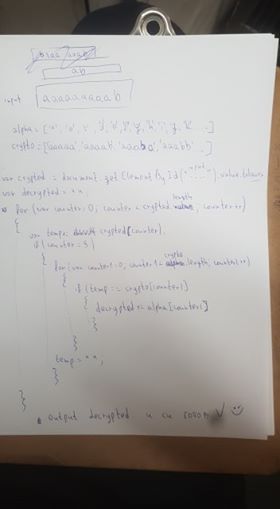 ab
input
aaaaaaaaab
alpha = ['a', 'b', 'c', 'd', 'e', 'f', 'g', 'h', 'i', 'j', 'k' ....]
crypto = ['aaaaa', 'aaaab', 'aaaba', 'aaabb' ....]
var crypted = document.getElementById("input").value
var decrypted = "";
for (var counter = 0; counter < crypted.length; counter++)
{
var temp = crypted[counter];
if (counter = 5)
{
for (var counter1 = 0; counter1 < crypto.length; counter1++)
{
if (temp == crypto[counter1])
{
decrypted += alpha[counter1]
}
}
temp = "";
}
}
output decrypted